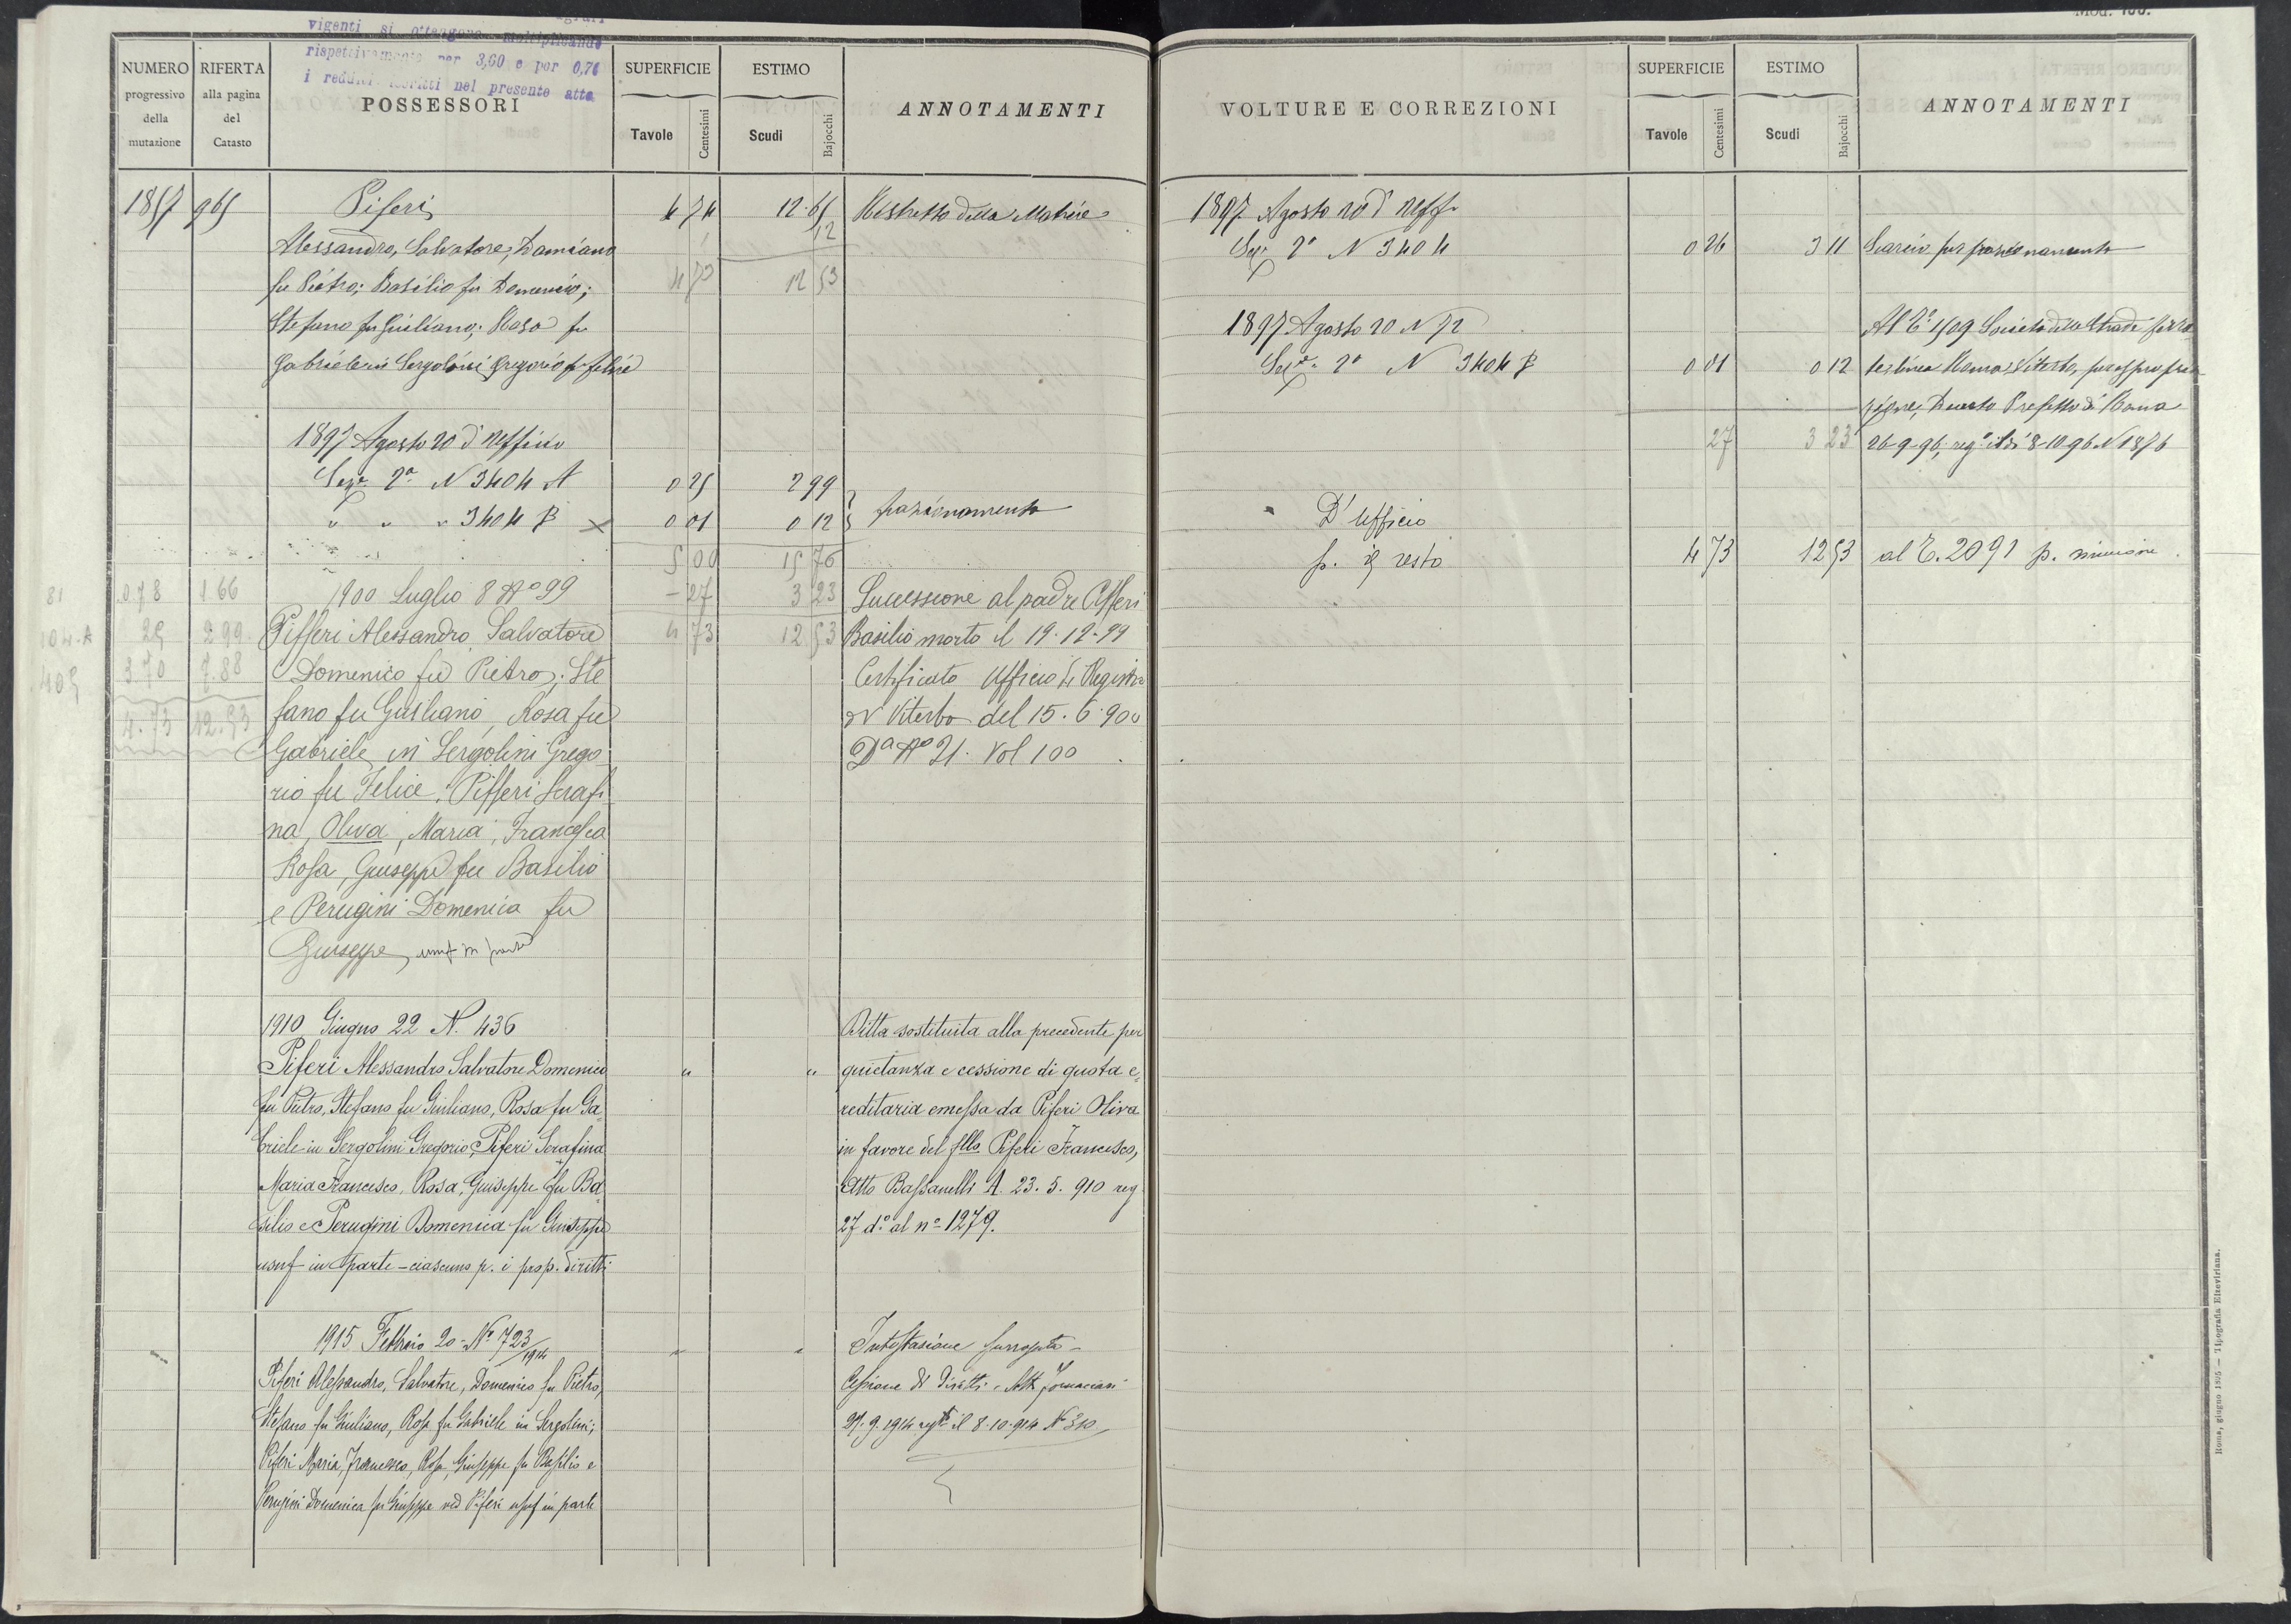 Mod. 133.
vigenti si ottengono moltiplicando
rispettivamente per 3,60 e por 0,76
i redditi iscritti nel presente atto
NUMERO progressivo della mutazione
RIFERTA alla pagina del Catasto
POSSESSORI
SUPERFICIE
Tavole Centesimi
ESTIMO
Scudi Bajocchi
ANNOTAMENTI
1857 965 Piferi 4 74 12 65 Ristretto della Matrice
Alessandro, Salvatore, Damiano 1 12
fu Pietro; Basilio fu Domenico; 4 73 12 53
Stefano fu Giuliano; Rosa fu
Gabriele in Sergolini Gregorio fu Felice
1897 Agosto 20 d'Ufficio
Sez.e 2a N 3404 A 0 25 2 99
" " " 3404 B x 0 01 0 12 frazionamento
5 00 15 76
81 0.78 1 66 1900 Luglio 8 No 99 - 27 3 23 Successione al padre Pifferi
104-A 25 2 99 Pifferi Alessandro Salvatore 4 73 12 53 Basilio morto il 19-12-99
405 3 70 7.88 Domenico fu Pietro; Ste Certificato Ufficio di Registro
4.73 12.53 fano fu Giuliano, Rosa fu di Viterbo del 15.6.900
Gabriele in Sergolini Grego Da No 21. Vol 100
rio fu Felice. Pifferi Serafi
na, Oliva, Maria, Francesca
Rosa, Giuseppe fu Basilio
e Perugini Domenica fu
Giuseppe, usuf in parte
1910 Giugno 22 N. 436 Ditta sostituita alla precedente per
Piferi Alessandro Salvatore Domenico " " quietanza e cessione di quota e-
fu Pietro, Stefano fu Giuliano, Rosa fu Ga reditaria emessa da Piferi Oliva
briele in Sergolini Gregorio, Piferi Serafina in favore del fllo Piferi Francesco,
Maria Francesco, Rosa, Giuseppe fu Ba Atto Bassanelli A. 23.5.910 reg
silio e Perugini Domenica fu Giuseppe 27 do al no 1279.
usuf in parte - ciascuno p. i prop. diritti
1915 Febbraio 20 - No 723/1914 " " Intestazione surrogata -
Piferi Alessandro, Salvatore, Domenico fu Pietro, Cessione di diritti - Atto Fornaciari
Stefano fu Giuliano, Rosa fu Gabriele in Sergolini; 27.9.1914 regto il 8-10-914 No 310
Piferi Maria, Francesco, Rosa, Giuseppe fu Basilio e
Perugini Domenica fu Giuseppe ved Piferi usuf in parte
VOLTURE E CORREZIONI
SUPERFICIE
Tavole Centesimi
ESTIMO
Scudi Bajocchi
ANNOTAMENTI
1897 Agosto 20 d'Uff.
Sez.e 2a N 3404 0 26 3 11 Scarico per frazionamento
1897 Agosto 20 N 72 Al Ca 1509 Società delle Strade ferra
Sez.e 2a N 3404 B 0 01 0 12 te linea Roma Viterbo, per espropria
zione, Decreto Prefetto di Roma
27 3 23 26-9-96, rego il dì 8-10-96 N 1876
D'Ufficio
p. il resto 4 73 12 53 al C. 2091 p. riunione
Roma, giugno 1895 — Tipografia Elzeviriana.